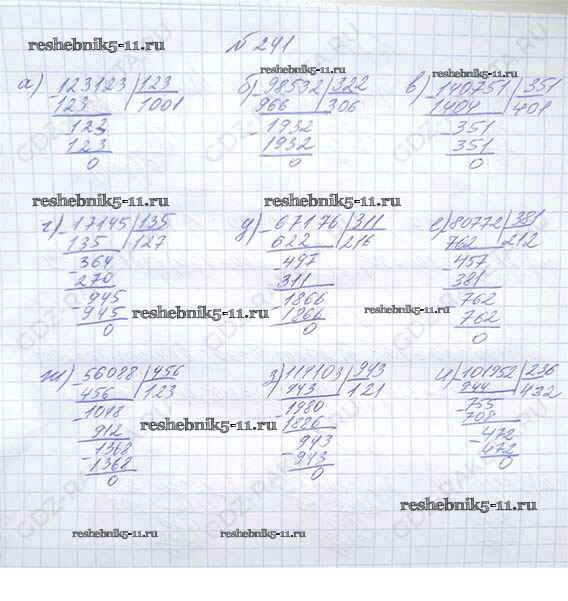 reshebnik5-11.ru
№ 241
reshebnik5-11.ru
reshebnik5-11.ru
а) 123123 | 123
123 | 1001
- 123
123
0
б) 98532 | 322
966 | 306
- 1932
1932
0
в) 140751 | 351
1404 | 401
- 351
351
0
reshebnik5-11.ru
reshebnik5-11.ru
г) - 17145 | 135
135 | 127
- 364
270
- 945
945
0
д) - 67176 | 311
622 | 216
- 497
311
- 1866
1866
0
е) 80772 | 381
762 | 212
- 457
381
762
762
0
reshebnik5-11.ru
reshebnik5-11.ru
ж) - 56088 | 456
456 | 123
- 1048
912
- 1368
1368
0
з) 114103 | 943
943 | 121
- 1980
1886
- 943
943
0
и) - 101952 | 236
944 | 432
- 755
708
- 472
472
0
reshebnik5-11.ru
reshebnik5-11.ru
reshebnik5-11.ru
reshebnik5-11.ru